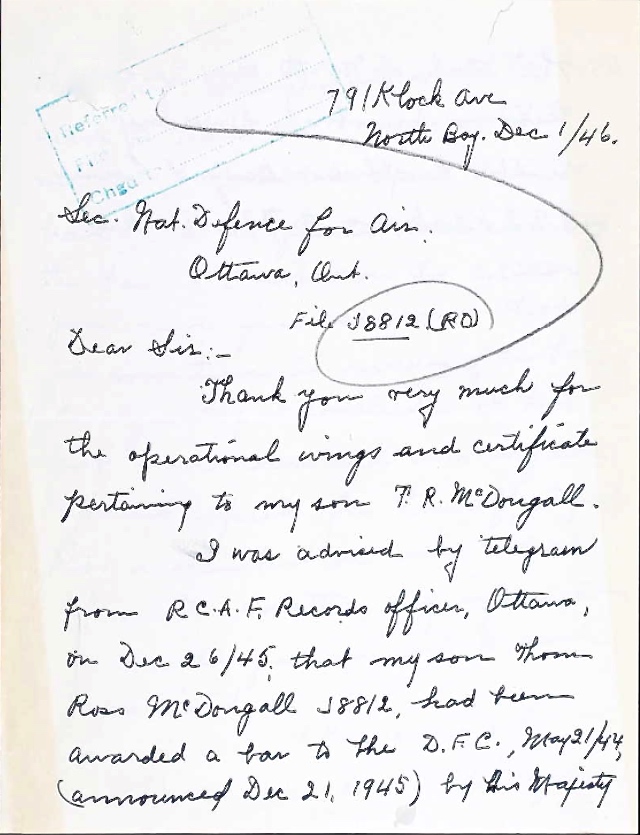 Referred to
File
Chgd to
791 Klock Ave
North Bay. Dec 1/46.
Sec. Nat. Defence for Air.
Ottawa, Ont.
File J8812 (RO)
Dear Sir:-
Thank you very much for
the operational wings and certificate
pertaining to my son T. R. McDougall.
I was advised by telegram
from R.C.A.F. Records officer, Ottawa,
on Dec 26/45, that my son Thom
Ross McDougall J8812, had been
awarded a bar to the D.F.C., May 21/44,
(announced Dec 21, 1945) by His Majesty